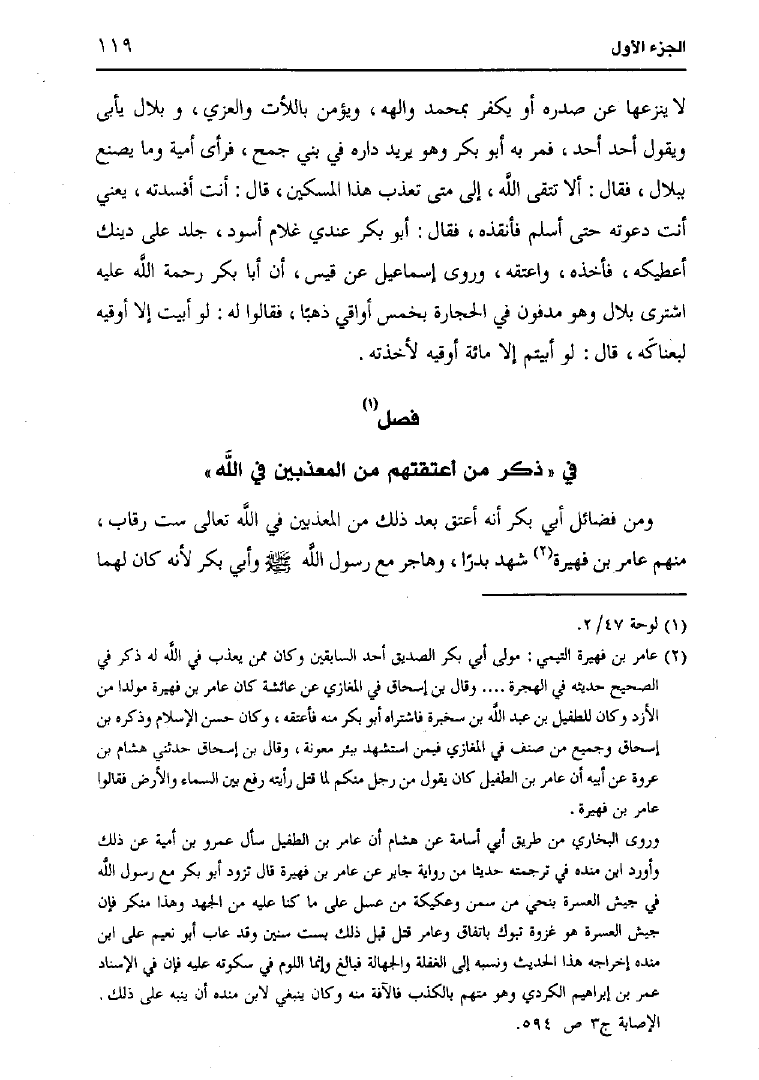 الجزء الأول ١١٩
لا ينزعها عن صدره أو يكفر بمحمد والهه ، ويؤمن باللأت والعزي ، و بلال يأبى
ويقول أحد أحد ، فمر به أبو بكر وهو يريد داره في بني جمح ، فرأى أمية وما يصنع
ببلال ، فقال : ألا تتقى اللَّه ، إلى متى تعذب هذا المسكين ، قال : أنت أفسدته ، يعني
أنت دعوته حتى أسلم فأنقذه ، فقال : أبو بكر عندي غلام أسود ، جلد على دينك
أعطيكه ، فأخذه ، واعتقه ، وروى إسماعيل عن قيس ، أن أبا بكر رحمة اللَّه عليه
اشترى بلال وهو مدفون في الحجارة بخمس أواقي ذهبًا ، فقالوا له : لو أبيت إلا أوقيه
لبعناكه ، قال : لو أبيتم إلا مائة أوقيه لأخذته .
فصل(١)
في « ذكر من أعتقتهم من المعذبين في اللَّه »
ومن فضائل أبي بكر أنه أعتق بعد ذلك من المعذبين في اللَّه تعالى ست رقاب ،
منهم عامر بن فهيرة(٢) شهد بدرًا ، وهاجر مع رسول اللَّه ﷺ وأبي بكر لأنه كان لهما
(١) لوحة ٢/٤٧.
(٢) عامر بن فهيرة التيمي : مولى أبي بكر الصديق أحد السابقين وكان ممن يعذب في اللَّه له ذكر في
الصحيح حديثه في الهجرة .... وقال بن إسحاق في المغازي عن عائشة كان عامر بن فهيرة مولدا من
الأزد وكان للطفيل بن عبد اللَّه بن سخبرة فاشتراه أبو بكر منه فأعتقه ، وكان حسن الإسلام وذكره بن
إسحاق وجميع من صنف في المغازي فيمن استشهد ببئر معونة ، وقال بن إسحاق حدثني هشام بن
عروة عن أبيه أن عامر بن الطفيل كان يقول من رجل منكم لما قتل رأيته رفع بين السماء والأرض فقالوا
عامر بن فهيرة .
وروى البخاري من طريق أبي أسامة عن هشام أن عامر بن الطفيل سأل عمرو بن أمية عن ذلك
وأورد ابن منده في ترجمته حديثا من رواية جابر عن عامر بن فهيرة قال تزود أبو بكر مع رسول اللَّه
في جيش العسرة بنحي من سمن وعكيكة من عسل على ما كنا عليه من الجهد وهذا منكر فإن
جيش العسرة هو غزوة تبوك باتفاق وعامر قتل قبل ذلك بست سنين وقد عاب أبو نعيم على ابن
منده إخراجه هذا الحديث ونسبه إلى الغفلة والجهالة فبالغ وإنما اللوم في سكوته عليه فإن في الإسناد
عمر بن إبراهيم الكردي وهو متهم بالكذب فالآفة منه وكان ينبغي لابن منده أن ينبه على ذلك .
الإصابة ج٣ ص ٥٩٤.